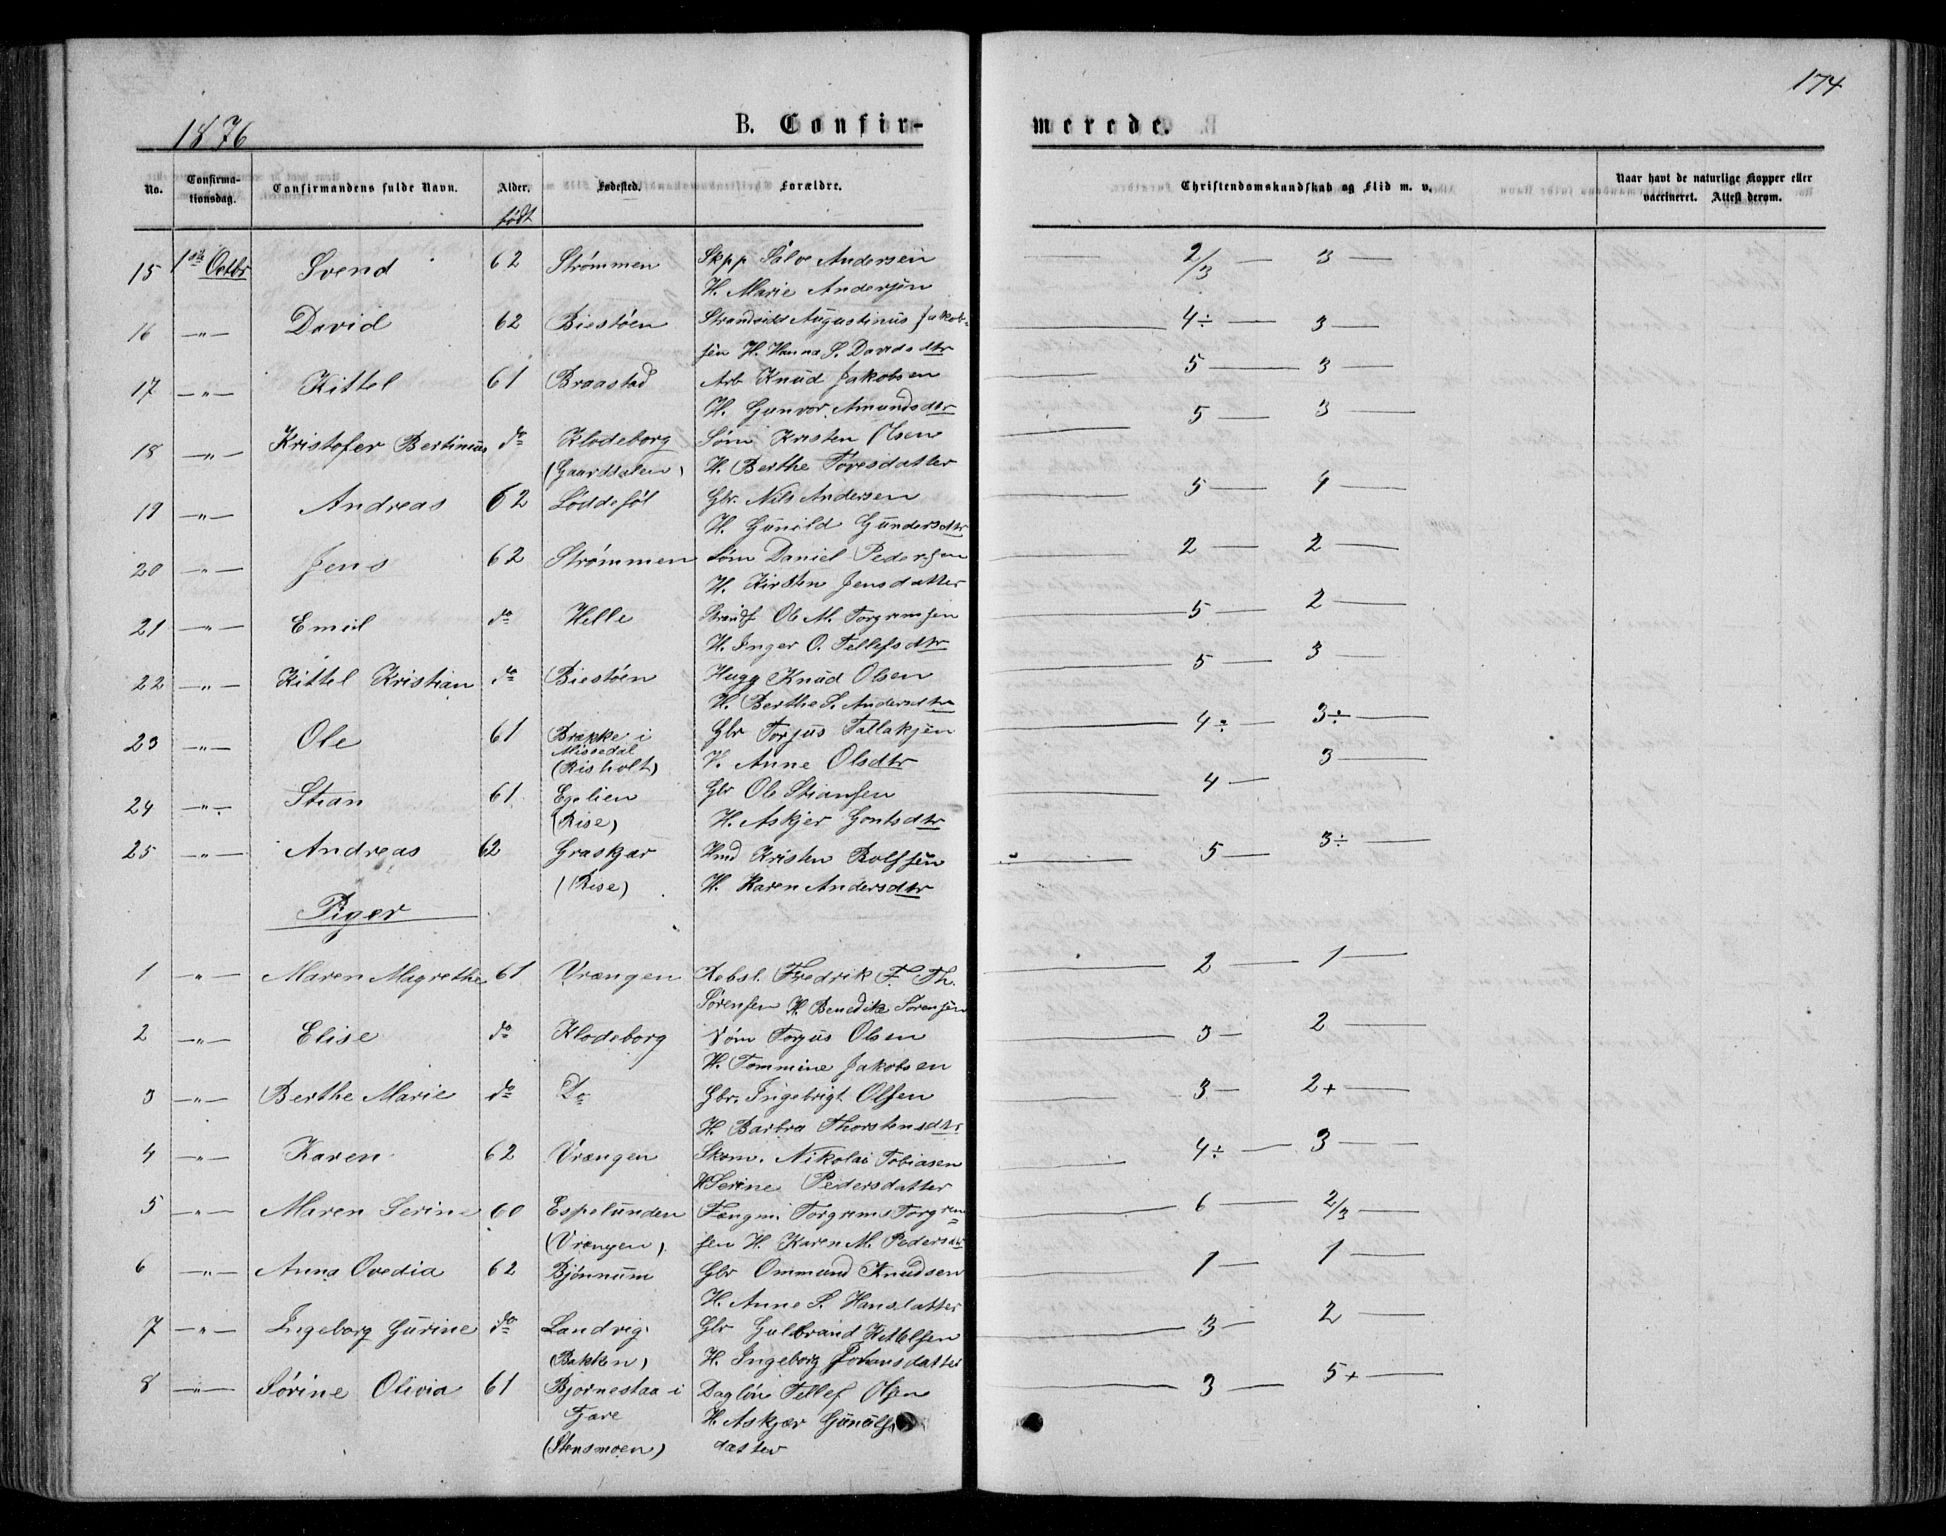 174
1876
B. Confir-
merede.
No. Confirma-tionsdag. Confirmandens fulde Navn. Alder. Fødested. Forældre. Christendomskundskab og Flid m. v. Naar havt de naturlige Kopper eller vaccineret. Attest derom.
født
15 1ste Octbr Svend 62 Strømmen Skpp Salve Andersen 2/3 — 3 —
H. Marie Andersen
16 —"— David 62 Biestøen Strandsidd Augustinus Jakob- 4÷ — 3 —
sen H. Hanna S. Davidsdtr
17 —"— Kittel 61 Braastad Arb Knud Jakobsen 5 — 3 —
H. Gunvor Amundsdtr
18 —"— Kristofer Bertinius do Klodeborg Søm Kristen Olsen 5 — 3 —
(Gaardsalen) H. Berthe Tovesdatter
19 —"— Andreas 62 Løddesøl Gbr. Nils Andersen 5 — 4 —
H. Gunild Gundersdtr
20 —"— Jens 62 Strømmen Søm Daniel Pedersen 2 — 2 —
H. Kirsten Jensdatter
21 —"— Emil do Helle Ole M. Torgrimsen 5 — 2 —
H. Inger O. Tellefsdtr
22 —"— Kittel Kristian do Biestøen Hugg Knud Olsen 5 — 3 —
H. Berthe S. Andersdtr
23 —"— Ole 61 Brække i Gbr Torjus Tallaksen 4÷ — 3÷ —
Missedal
(Risholt) H. Anne Olsdtr
24 —"— Stian 61 Egelien Gbr Ole Stiansen 4 — 3 —
(Rise) H. Askjer Gontsdtr
25 —"— Andreas 62 Graskjær Hmd Kristen Rolfsen 5 — 3÷ —
(Rise) H. Karen Andersdtr
Piger
1 —"— Maren Magrethe 61 Vrængen Rebsl. Fredrik F. Th. 2 — 1 —
Sørensen H. Benedikte Sørensen
2 —"— Elise do Klodeborg Søm Torjus Olsen 3 — 2 —
H. Tommine Jakobsen
3 —"— Berthe Marie do Do Gbr. Ingebrigt Olsen 3 — 2+ —
H. Barbra Thorstensdtr
4 —"— Karen 62 Vrængen Skom. Nikolai Tobiasen 4÷ — 3 —
H Serine Pedersdatter
5 —"— Maren Serine 60 Espelunden Fængm. Torgrims Torgrim= 6 — 2/3 —
(Vrængen) sen H. Karen M. Pedersdtr
6 —"— Anna Ovedia 62 Bjønnum Gbr Ommund Knudsen 1 — 1 —
H. Anne S. Hansdatter
7 —"— Ingeborg Gurine do Landvig Gbr Gulbrand Kittelsen 3 — 2 —
(Bakken) H. Ingeborg Johansdatter
8 —"— Sørine Olivia 61 Bjørnestaa i Dagløn Tellef Olsen 3 — 5+ —
Fjære H. Askjær Gunulfs
(Stensmoen) datter